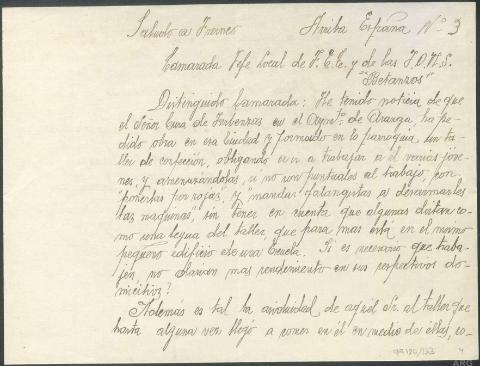 Saludo a Franco Arriba España Nº 3
Camarada Jefe Local de F.E.E. y de las J.O.N.S.
"Betanzos"
Distinguido Camarada: He tenido noticia de que
el Señor Cura de en el Aynto. de Aranga, ha pe-
dido otra en esa Ciudad y formado en la parroquia, un ta-
ller de confección, obligando a ir a trabajar a él varias jóve-
nes, y amenazándolas, si no son puntuales al trabajo, con
"ponerlas por rojas", y "mandar falangistas a
las maquinas", sin tener en cuenta que algunas distan co-
mo una legua del taller, que para mas está en el mismo
pequeño edificio de una Escuela. Si es necesario que traba-
jen, no darían mas rendimiento en sus respectivos do-
micilios?
Además es tal la asiduidad de aquél Sr. al taller que
hasta alguna vez llegó a comer en él en medio de ellas, co-
ARG